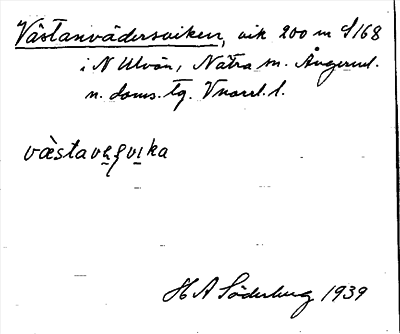 Västanvädersviken, vik 200 m S 168
i N Ulvön, Nätra sn. Ångerml.
n. doms. tg. Vnorrl. l.
västavęʂvıka
H A Söderberg 1939